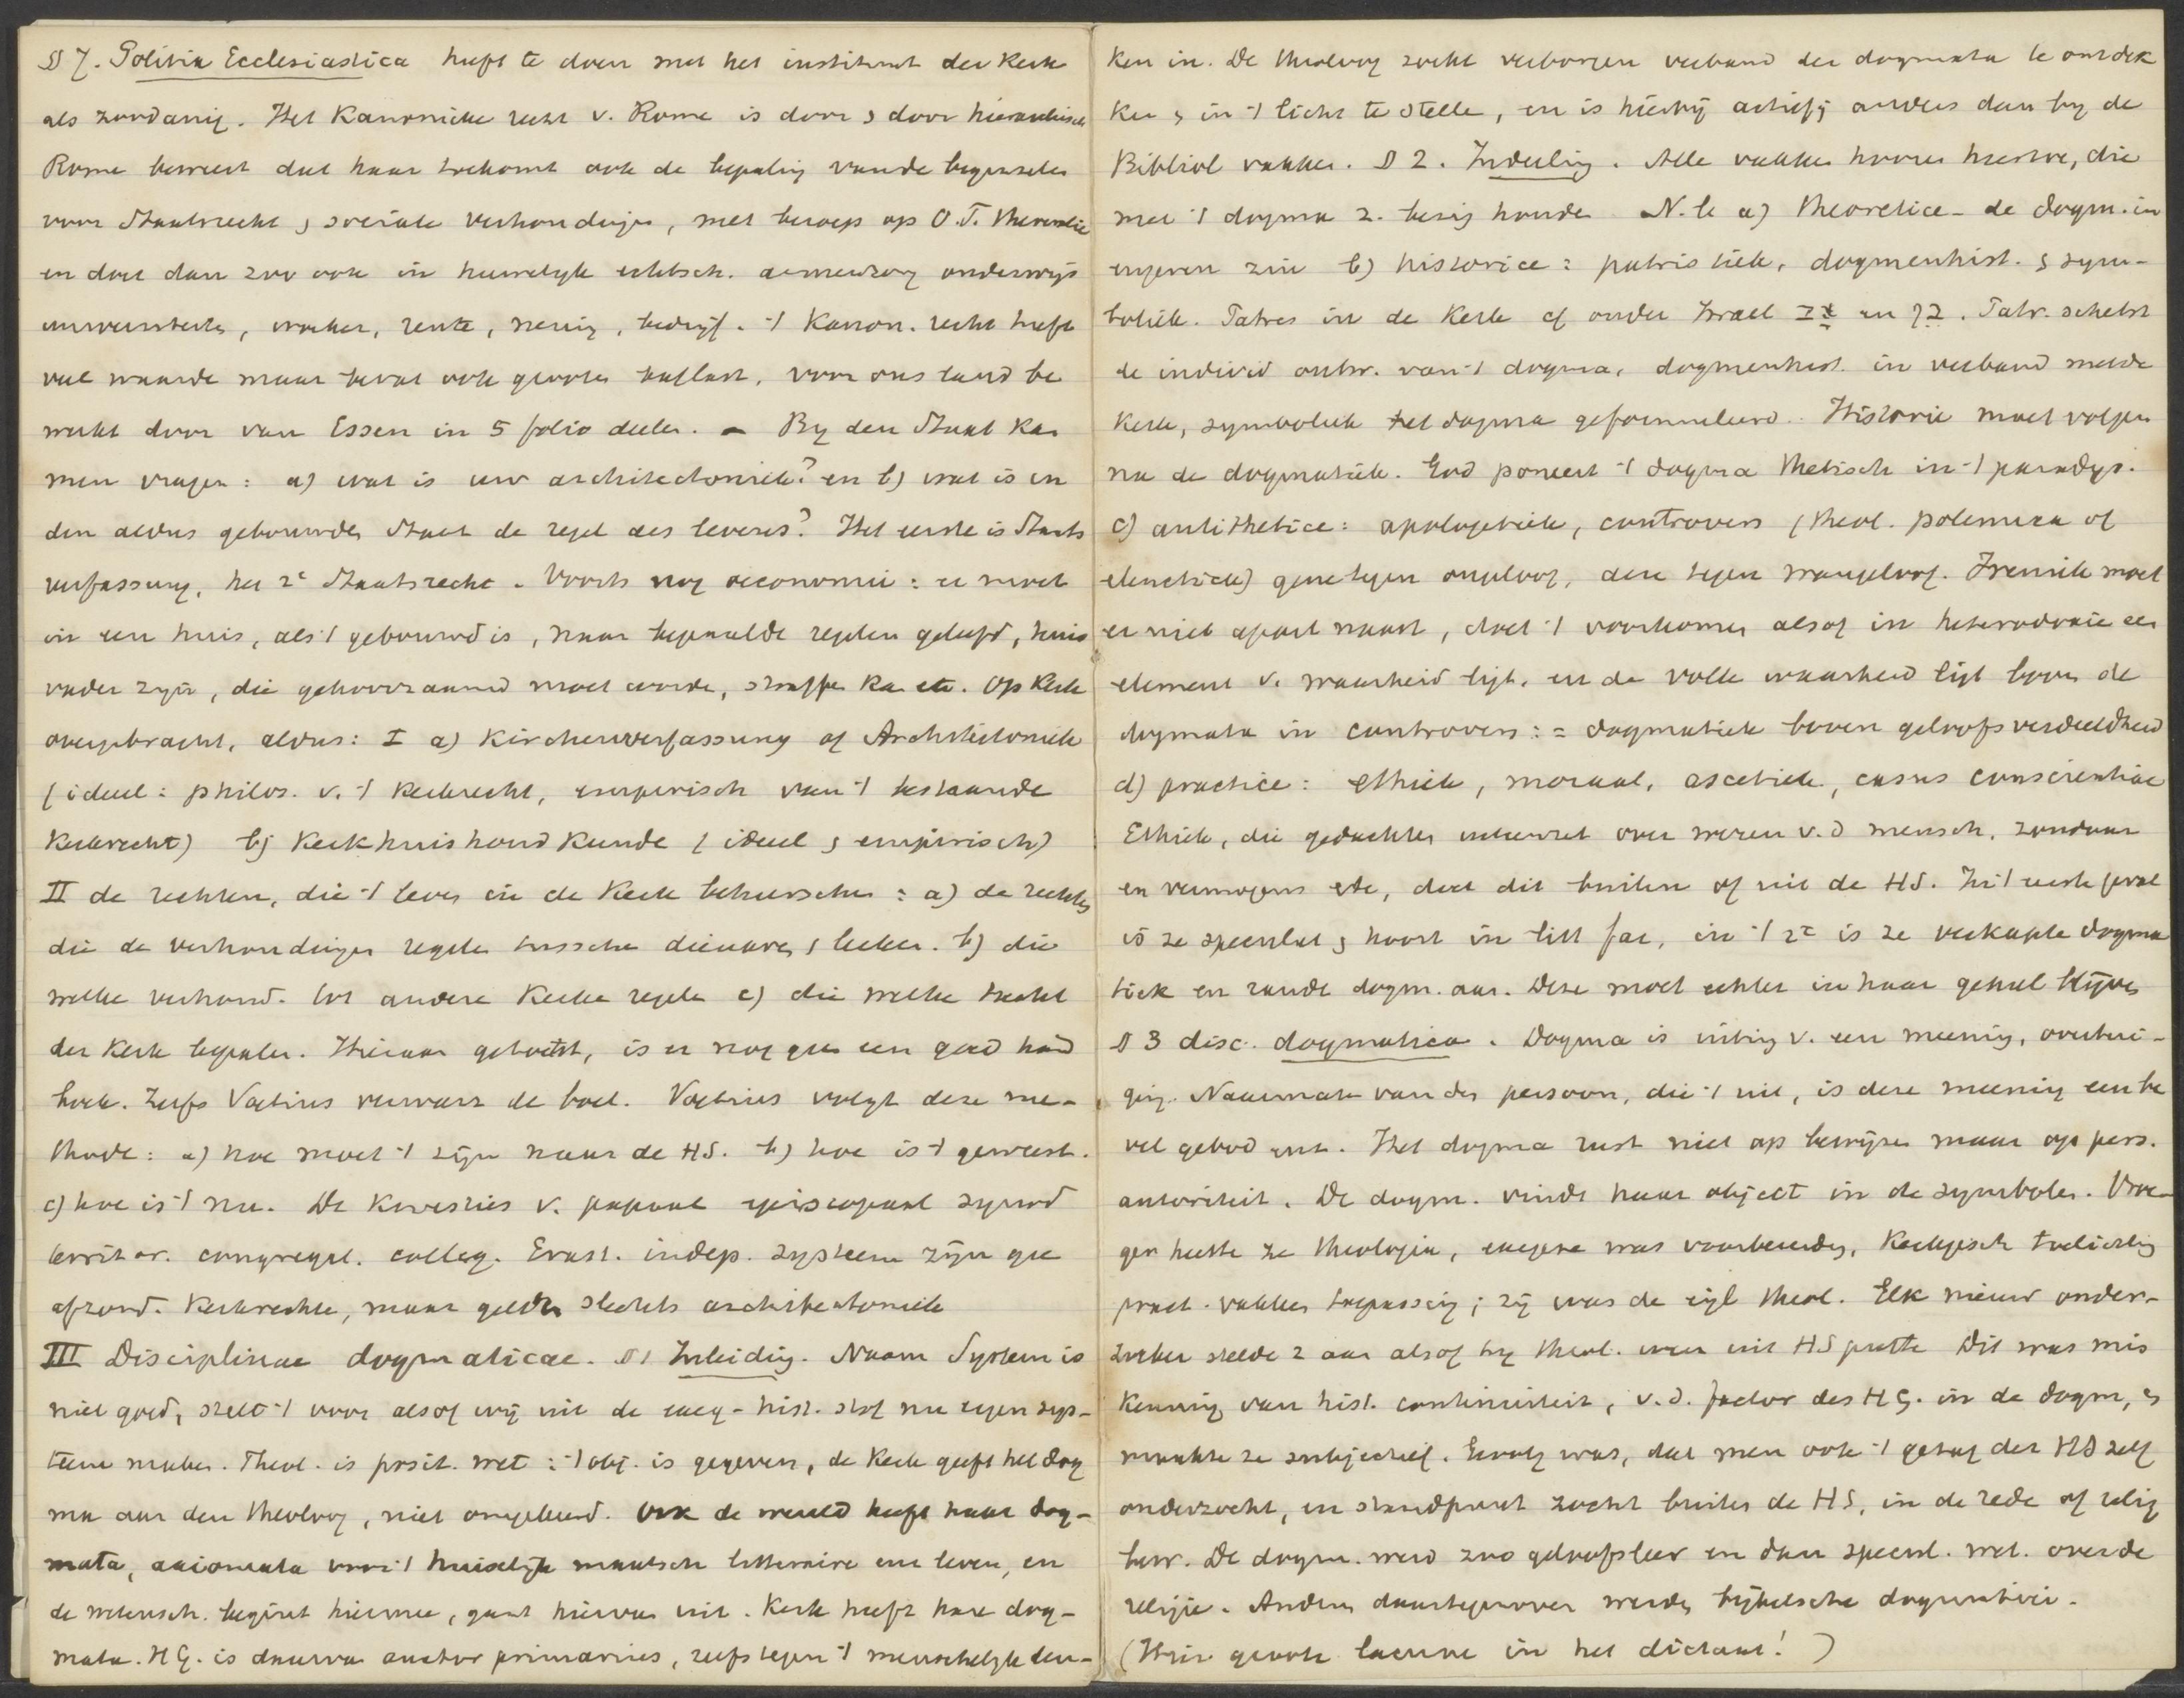 § 7. Politia Ecclesiastica heeft te doen met het instituut der Kerk
als zoodanig. Het Kanonieke recht v. Rome is door & door hierarchisch
Rome beweert dat haar toekomt ook de bepaling van de beginselen
voor Staatsrecht & sociale verhoudingen, met beroep op O.T. theocratie
en doet dan zoo ook in huwelyk echtsch. armenzorg onderwijs
universiteiten, woeker, rente, nering, bedryf. 't Kanon. recht heeft
veel waarde maar bevat ook grooten ballast, voor ons land be
werkt door van Essen in 5 folio deelen. – By den Staat kan
men vragen: a) wat is uw architectoniek? en b) wat is in
den aldus gebouwden Staat de regel des levens? Het eerste is Staats
verfassung, het 2e Staatsrecht. Voorts nog oeconomie: er moet
in een huis, als 't gebouwd is, naar bepaalde regelen geleefd, huis
vader zyn, die gehoorzaamd moet worde, straffen kan etc. Op Kerk
overgebracht, aldus: I a) Kirchenverfassung of Architectoniek
(ideeel: philos. v. 't Kerkrecht, empirisch van 't bestaande
Kerkrecht) b) Kerkhuishoudkunde (ideeel & empirisch)
II de rechten, die 't leven in de Kerk beheerschen: a) de rechten
die de verhoudingen regelen tusschen dienaren & leeken. b) die
welke verhoud. tot andere Kerken regelen c) die welke tucht
der Kerk bepalen. Hieraan getoetst, is er nog geen een goed hand
boek. Zelfs Voetius verwart de boel. Voetius volgt deze me-
thode: a) hoe moet 't zijn naar de HS. b) hoe is 't geweest.
c) hoe is 't nu. De kwesties v. papaal episcopaal synod
territor. congregat. colleg. Erast. indep. systeem zijn geen
afzond. Kerkrechten, maar gelden slechts architectoniek
III Disciplinae dogmaticae. § 1 Inleiding. Naam System is
niet goed, stelt 't voor alsof wij uit de exeg-hist. stof nu eigen sys-
teem maken. Theol. is posit. wet: 't obj. is gegeven, de Kerk geeft het dog
ma aan den theoloog, niet omgekeerd. Ook de wereld heeft haar dog-
mata, axiomata voor 't huiselyk maatsch litteraire enz leven, en
de wetensch. begint hiermee, gaat hiervan uit. Kerk heeft hare dog-
mata. HG. is daarvan auctor primarius, zelfs tegen 't menschelyk den-
ken in. De theoloog zoekt verborgen verband der dogmata te ontdek
ken & in 't licht te stelle, en is hierbij actief & anders dan by de
Bibliol vakken. § 2. Indeeling. Alle vakken hooren hiertoe, die
met 't dogma z. bezig houde N.l. a) theoretice - de dogm. in
engeren zin b) historice: patristiek, dogmenhist. & sym-
boliek. Patres in de Kerk of onder Israel. Patr. schetst
de individ ontw. van 't dogma, dogmenhist. in verband met de
Kerk, symboliek het dogma geformuleerd. Historie moet volgen
na de dogmatiek. God poneert 't dogma thetisch in 't paradys.
c) antithetice: apologetiek, controvers (theol. polemica of
elenctica) gene tegen ongeloof, deze tegen wangeloof. Ireniek moet
er niet apart naast, doet 't voorkomen alsof in heterodoxie een
element v. waarheid ligt, en de volle waarheid ligt boven de
dogmata in controvers: = dogmatiek boven geloofsverdeeldheid
d) practice: ethiek, moraal, ascetiek, casus conscientiae
Ethiek, die gedachten ontwerpt over wezen v. d mensch, zondaar
en vermogens etc, doet dit buiten of uit de HS. In 't eerste geval
is ze speculat & hoort in litt fac, in 't 2e is ze verkapte dogma
tiek en rande dogm. aan. Deze moet echter in haar geheel blijven
§ 3 disc. dogmatica. Dogma is uiting v. een meening, overtui-
ging. Naarmate van den persoon, die 't uit, is deze meening een be
vel gebod enz. Het dogma rust niet op bewijzen maar op pers.
autoriteit. De dogm. vindt haar object in de symbolen. Vroe-
ger heette ze theologia, exegese was voorbereiding, Kerkgesch toelichting
pract. vakken toepassing; zij was de eigl theol. Elk nieuw onder-
zoeker stelde z aan alsof hy theol. weer uit HS putte Dit was mis
kenning van hist. continuiteit, v. d. factor des HG. in de dogm, &
maakte ze subjectief. Gevolg was, dat men ook 't gezag der HS zelf
onderzocht, en standpunt zocht buiten de HS, in de rede of relig
bew. De dogm. werd zoo geloofsleer en dan specul. wet. over de
religie. Anderen daartegenover werden bijbelsche dogmatici.
(Hier groote lacune in het dictaat!)